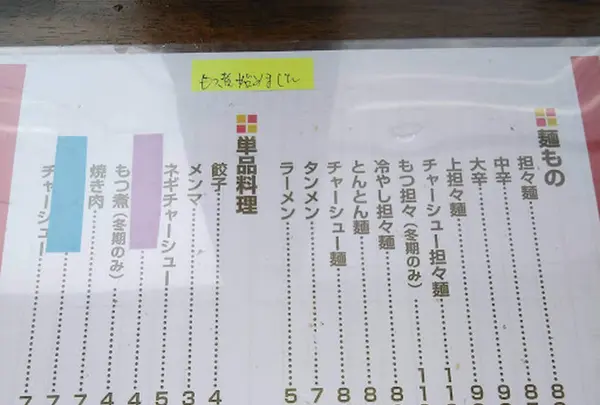 もつ煮始めました
麺もの
担々麺 8
中辛 8
大辛 9
上担々麺 9
チャーシュー担々麺 11
もつ担々(冬期のみ) 11
冷やし担々麺 8
とんとん麺 8
チャーシュー麺 8
タンメン 7
ラーメン 5
単品料理
餃子 4
メンマ 3
ネギチャーシュー 5
4
もつ煮(冬期のみ) 4
焼き肉 7
7
チャーシュー 7